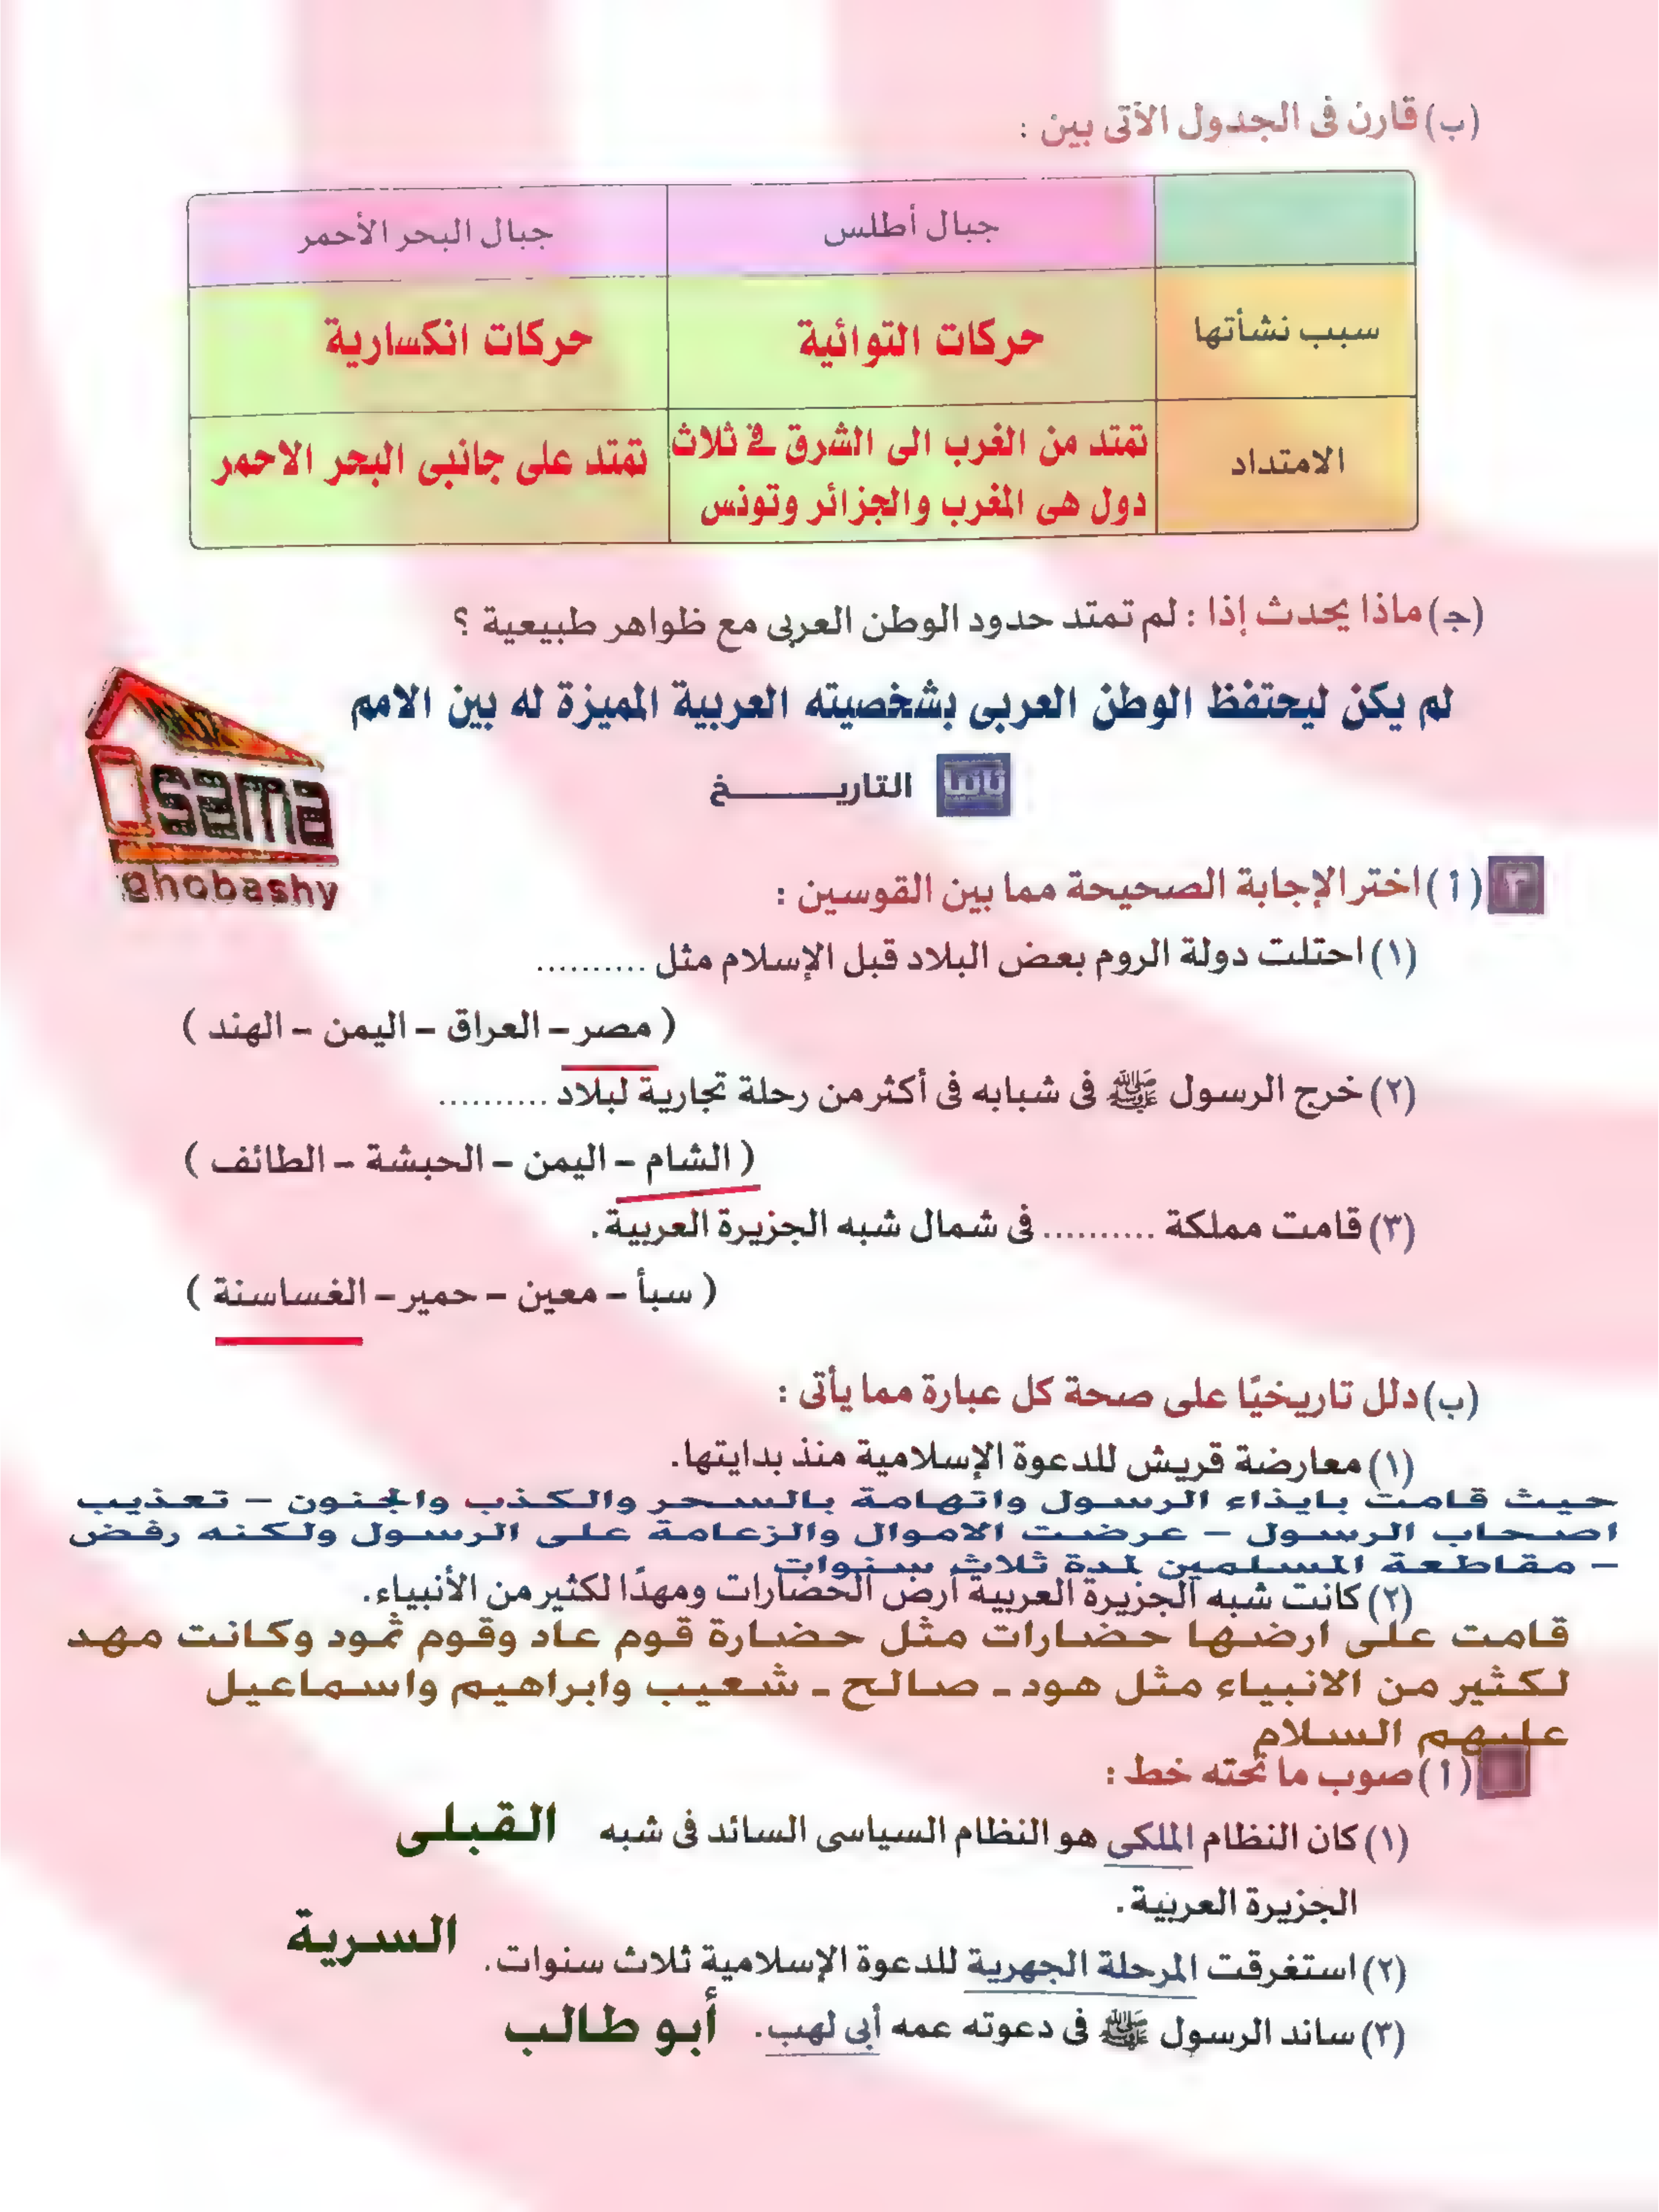 (ب) قارن فى الجدول الآتى بين :
جبال أطلس
جبال البحر الأحمر
سبب نشأتها
حركات التوائية
حركات انكسارية
الامتداد
تمتد من الغرب الى الشرق في ثلاث
دول هى المغرب والجزائر وتونس
تمتد على جانبى البحر الاحمر
(جـ) ماذا يحدث إذا : لم تمتد حدود الوطن العربى مع ظواهر طبيعية ؟
لم يكن ليحتفظ الوطن العربى بشخصيته العربية المميزة له بين الامم
Osama
ghobashy
ثانيا التاريـــــــخ
٣ (أ) اختر الإجابة الصحيحة مما بين القوسين :
(١) احتلت دولة الروم بعض البلاد قبل الإسلام مثل ..........
( مصر – العراق – اليمن – الهند )
(٢) خرج الرسول ﷺ فى شبابه فى أكثر من رحلة تجارية لبلاد ..........
( الشام – اليمن – الحبشة – الطائف )
(٣) قامت مملكة .......... فى شمال شبه الجزيرة العربية.
( سبأ – معين – حمير – الغساسنة )
(ب) دلل تاريخيًا على صحة كل عبارة مما يأتى :
(١) معارضة قريش للدعوة الإسلامية منذ بدايتها.
حيث قامت بايذاء الرسول واتهامة بالسحر والكذب والجنون – تعذيب
اصحاب الرسول – عرضت الاموال والزعامة على الرسول ولكنه رفض
– مقاطعة المسلمين لمدة ثلاث سنوات
(٢) كانت شبه الجزيرة العربية أرض الحضارات ومهدًا لكثير من الأنبياء.
قامت على ارضها حضارات مثل حضارة قوم عاد وقوم ثمود وكانت مهد
لكثير من الانبياء مثل هود ـ صالح ـ شعيب وابراهيم واسماعيل
عليهم السلام
(أ) صوب ما تحته خط :
(١) كان النظام الملكى هو النظام السياسى السائد فى شبه القبلى
الجزيرة العربية.
(٢) استغرقت المرحلة الجهرية للدعوة الإسلامية ثلاث سنوات. السرية
(٣) ساند الرسول ﷺ فى دعوته عمه أبى لهب. أبو طالب